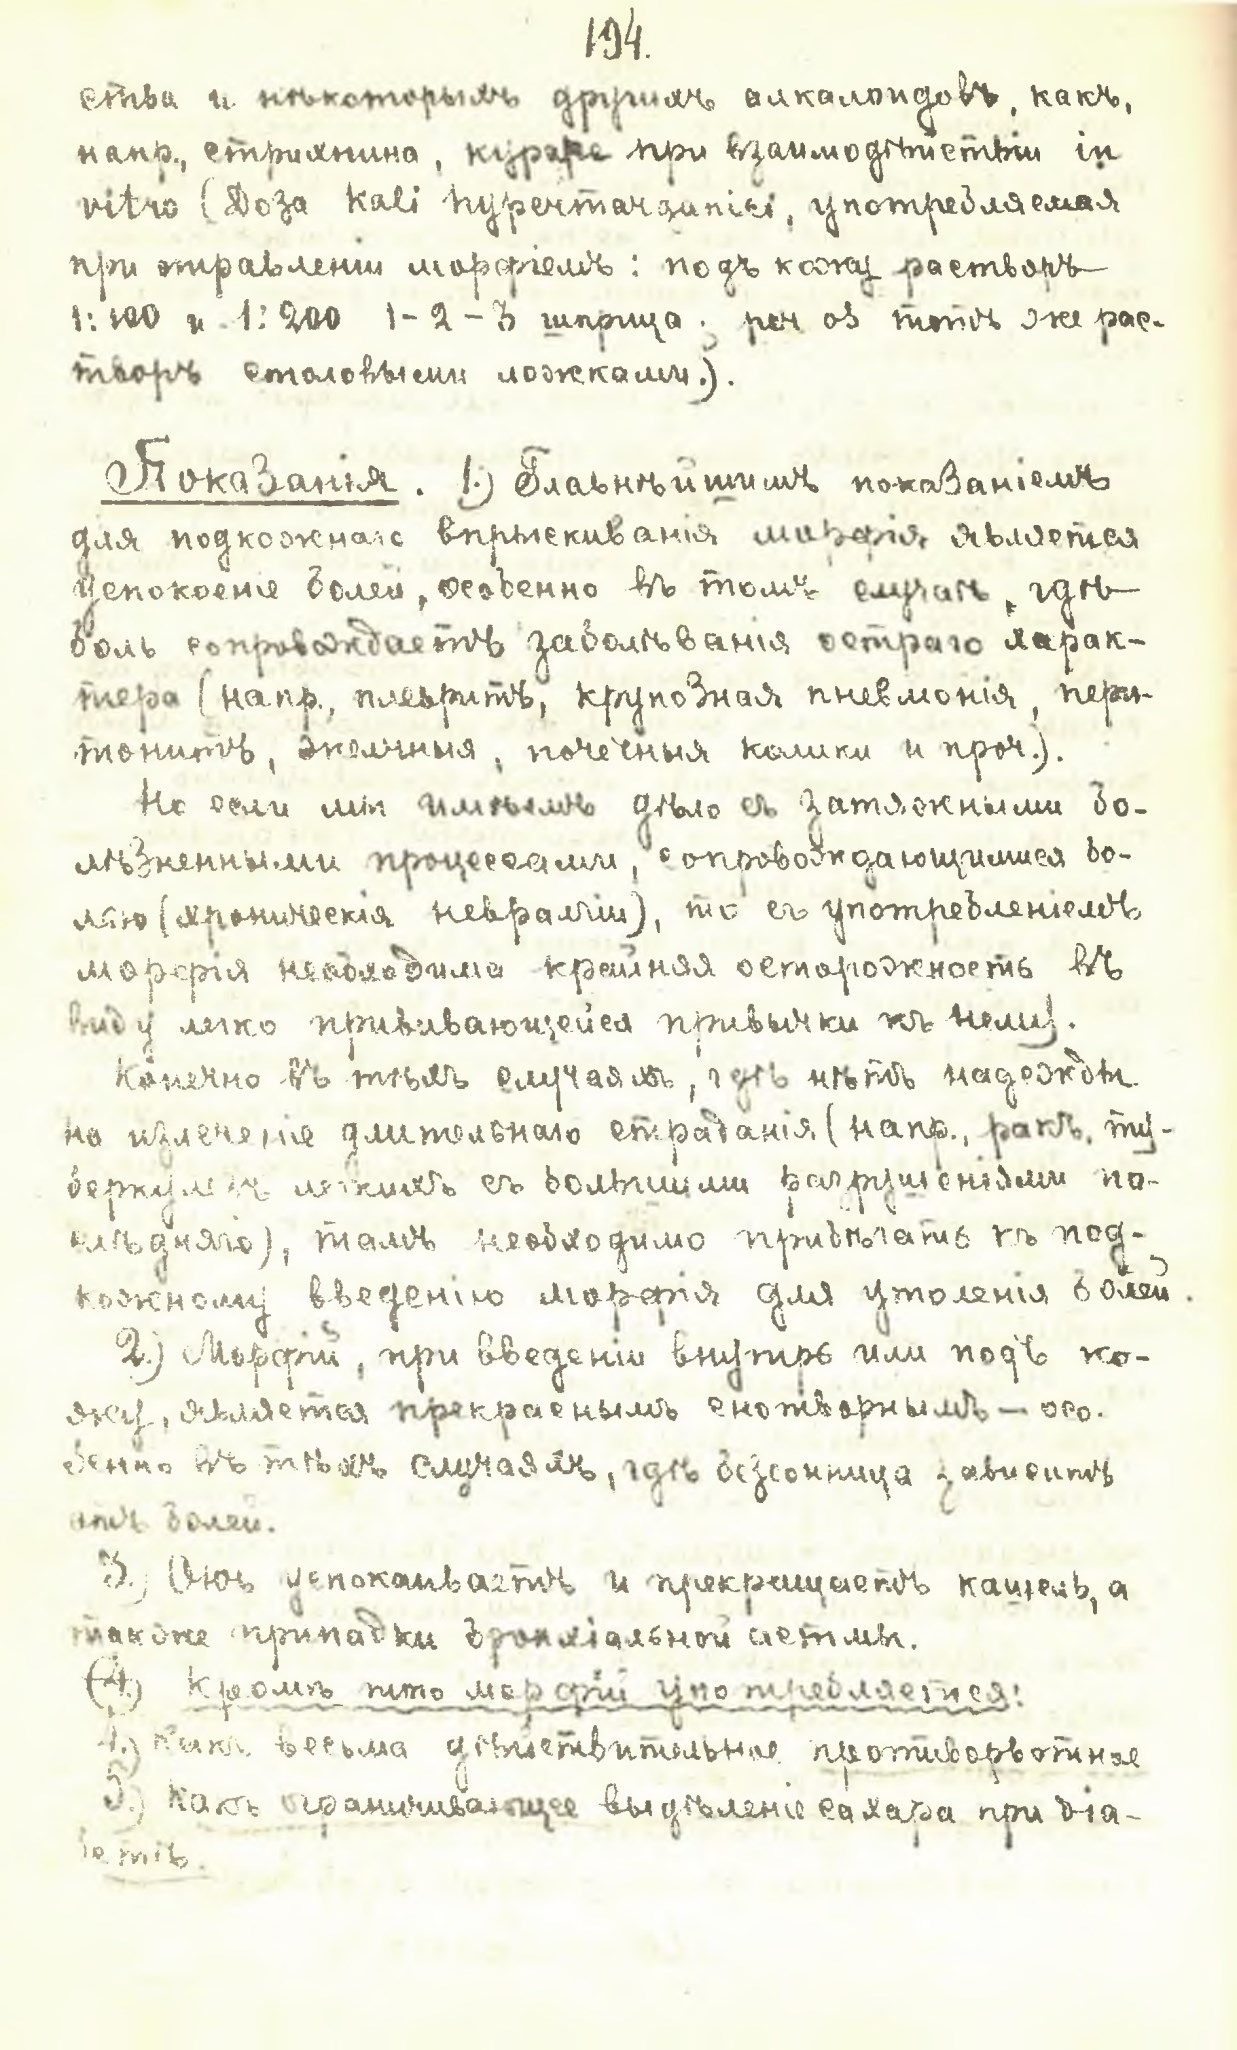 194.
ства и нѣкоторыхъ другихъ алкалоидовъ, какъ,
напр., стрихнина, кураре при взаимодѣйствіи in
vitro (Доза Kali hypermanganici, употребляемая
при отравленіи морфіемъ: подъ кожу растворъ
1:100 и 1:200 1-2-3 шприца; per os тотъ же рас-
творъ столовыми ложками.).
Показанія. 1.) Главнѣйшимъ показаніемъ
для подкожнаго впрыскиванія морфія является
успокоеніе болей, особенно въ томъ случаѣ, гдѣ
боль сопровождаетъ заболѣванія остраго харак-
тера (напр., плевритъ, крупозная пневмонія, пери-
тонитъ, желчныя, почечныя колики и проч.).
Но если мы имѣемъ дѣло съ затяжными бо-
лѣзненными процессами, сопровождающимися бо-
лью (хроническія невралгіи), то съ употребленіемъ
морфія необходима крайняя осторожность въ
виду легко прививающейся привычки къ нему.
Конечно въ тѣхъ случаяхъ, гдѣ нѣтъ надежды
на излеченіе длительнаго страданія (напр., ракъ, ту-
беркулезъ легкихъ съ большими разрушеніями по-
слѣдняго), тамъ необходимо прибѣгать къ под-
кожному введенію морфія для утоленія болей.
2.) Морфій, при введеніи внутрь или подъ ко-
жу, является прекраснымъ снотворнымъ — осо-
бенно въ тѣхъ случаяхъ, гдѣ безсонница зависитъ
отъ болей.
3.) Онъ успокаиваетъ и прекращаетъ кашель, а
также припадки бронхіальной астмы.
(4.) Кромѣ того морфій употребляется:
4.) Какъ весьма дѣйствительное противорвотное
5.) Какъ ограничивающее выдѣленіе сахара при діа-
бетѣ.